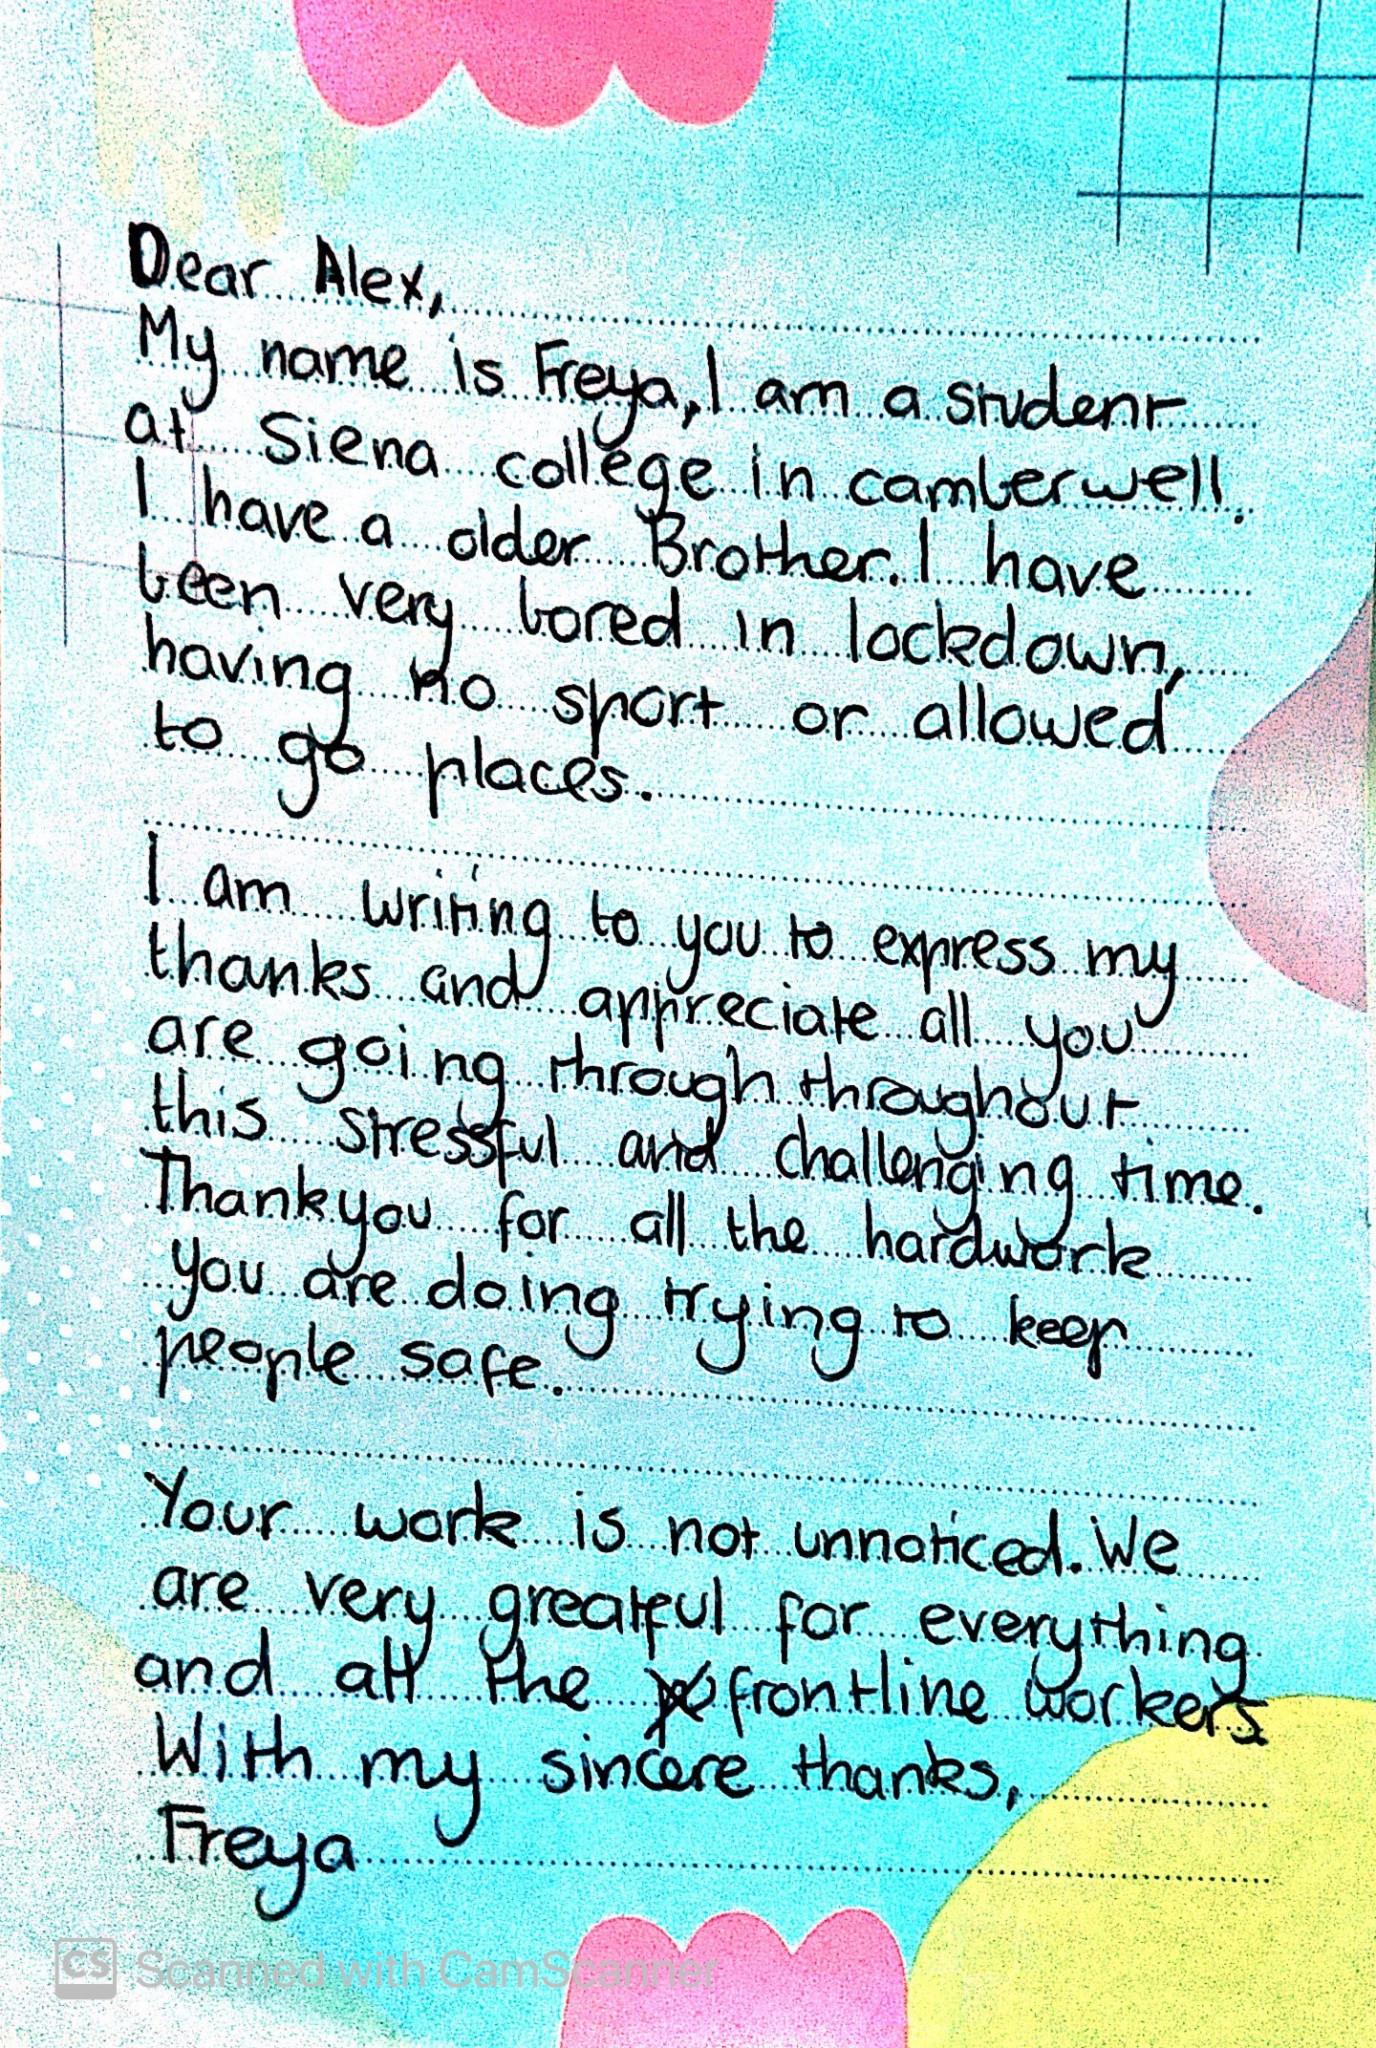 Dear Alex,
My name is Freya, I am a student
at Siena college in camberwell.
I have a older Brother. I have
been very bored in lockdown,
having no sport or allowed
to go places.
I am writing to you to express my
thanks and appreciate all you
are going through throughout
this stressful and challenging time.
Thankyou for all the hardwork
you are doing trying to keep
people safe.
Your work is not unnoticed. We
are very greatful for everything
and all the frontline workers
With my sincere thanks,
Freya
CS Scanned with CamScanner